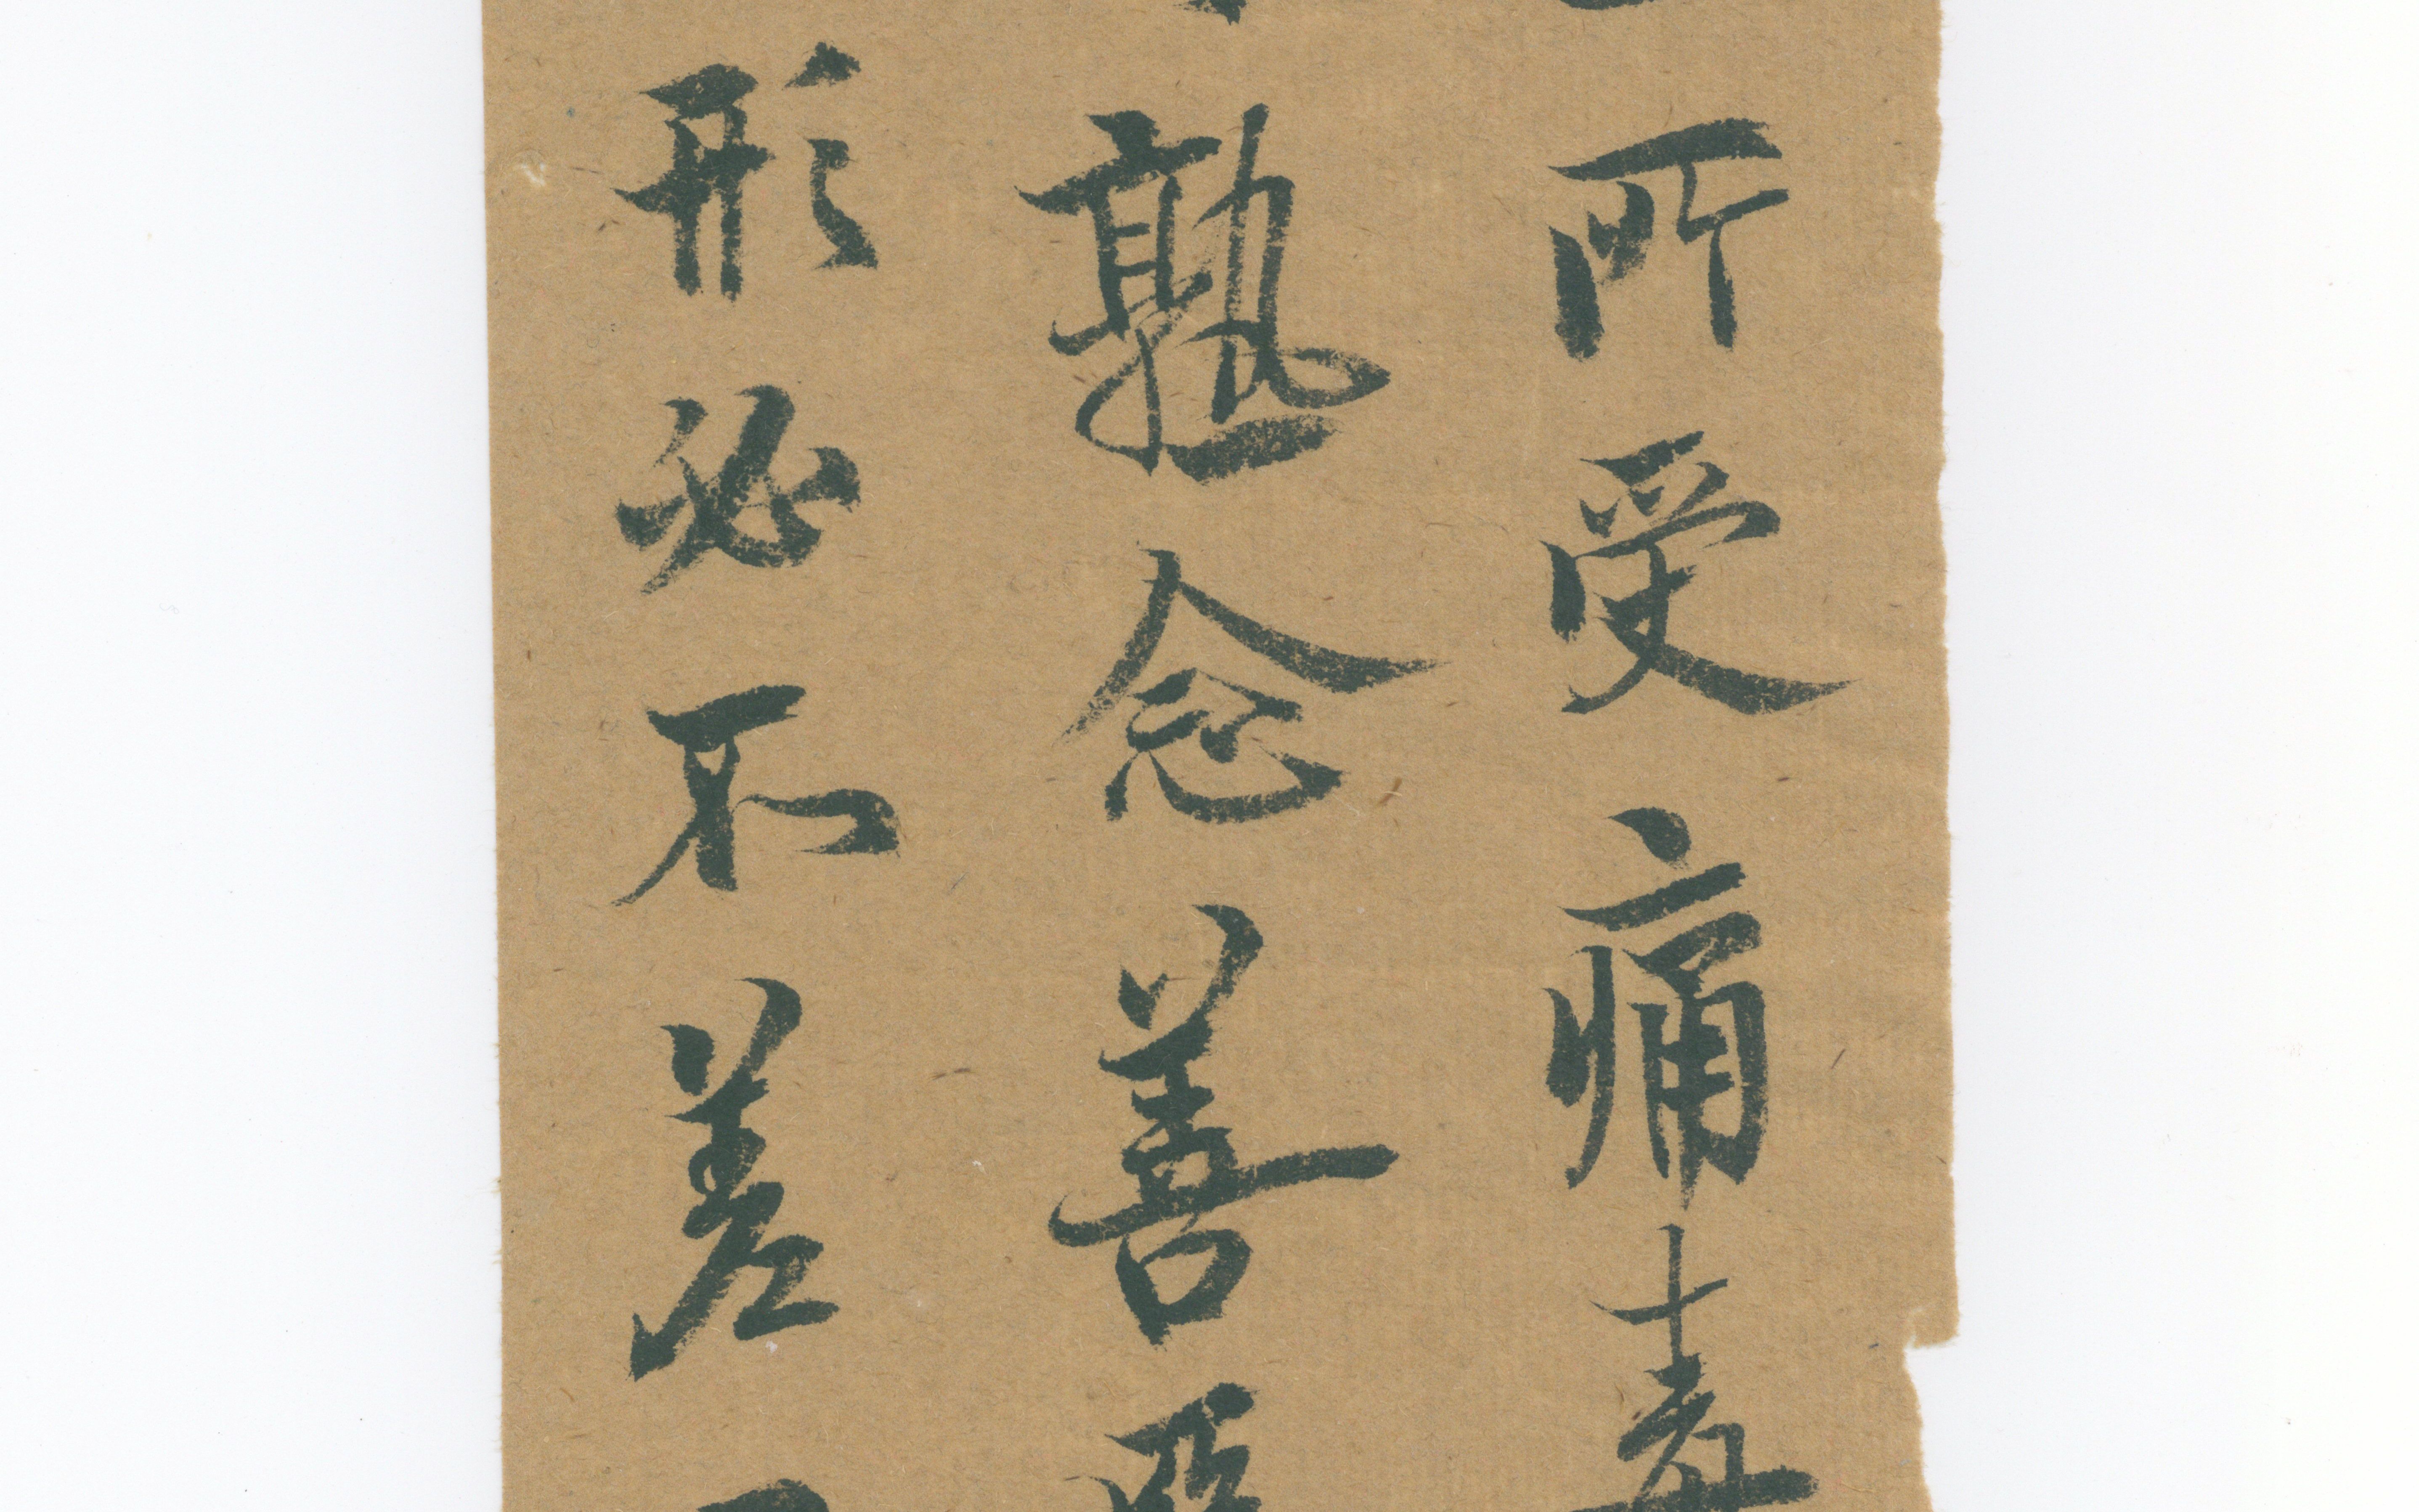 所受痛毒
熟念善惡
形必不差